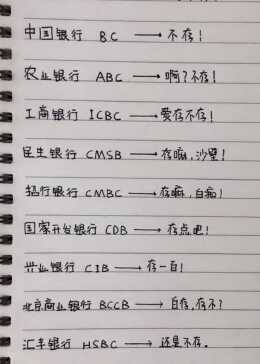 中国银行 BC → 不存!
农业银行 ABC → 啊?不存!
工商银行 ICBC → 爱存不存!
民生银行 CMSB → 存嘛,沙壁!
招行银行 CMBC → 存嘛,白痴!
国家开发银行 CDB → 存点吧!
兴业银行 CIB → 存一百!
北京商业银行 BCCB → 白存,存不?
汇丰银行 HSBC → 还是不存.